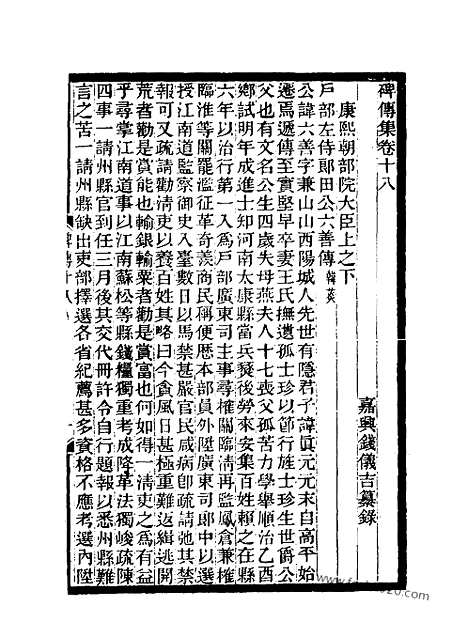 碑傳集卷十八
嘉興錢儀吉纂錄
康熙朝部院大臣上之下
戶部左侍郎田公六善傳 韓菼
公諱六善字兼山山西陽城人先世有隱君子諱眞元元末自高平始
遷焉遞傳至實堅早卒妻王氏撫遺孤士珍以節行旌士珍生世爵公
父也有文名公生四歲失母燕夫人十七喪父孤苦力學舉順治乙酉
鄉試明年成進士知河南太康縣當兵燹後勞來安集百姓賴之在縣
六年以治行第一入爲戶部廣東司主事尋榷關臨淸再監鳳倉兼榷
臨淮等關罷濫征革奇羨商民稱便歷本部員外陞廣東司郎中以選
授江南道監察御史入臺數日以馬禁甚嚴官民咸病卽疏請弛其禁
報可又疏請勸淸吏以養百姓其略曰今貪風日甚極重難返緝逃開
荒者勸是賞能也輸銀輸粟者勸是賞富也何如得一淸吏之爲有益
乎尋掌江南道事以江南蘇松等縣錢糧獨重考成降革法獨峻疏陳
四事一請州縣官到任三月後其交代冊許令自行題報以悉州縣難
言之苦一請州縣缺出吏部擇選各省紀薦甚多資格不應考選內陞